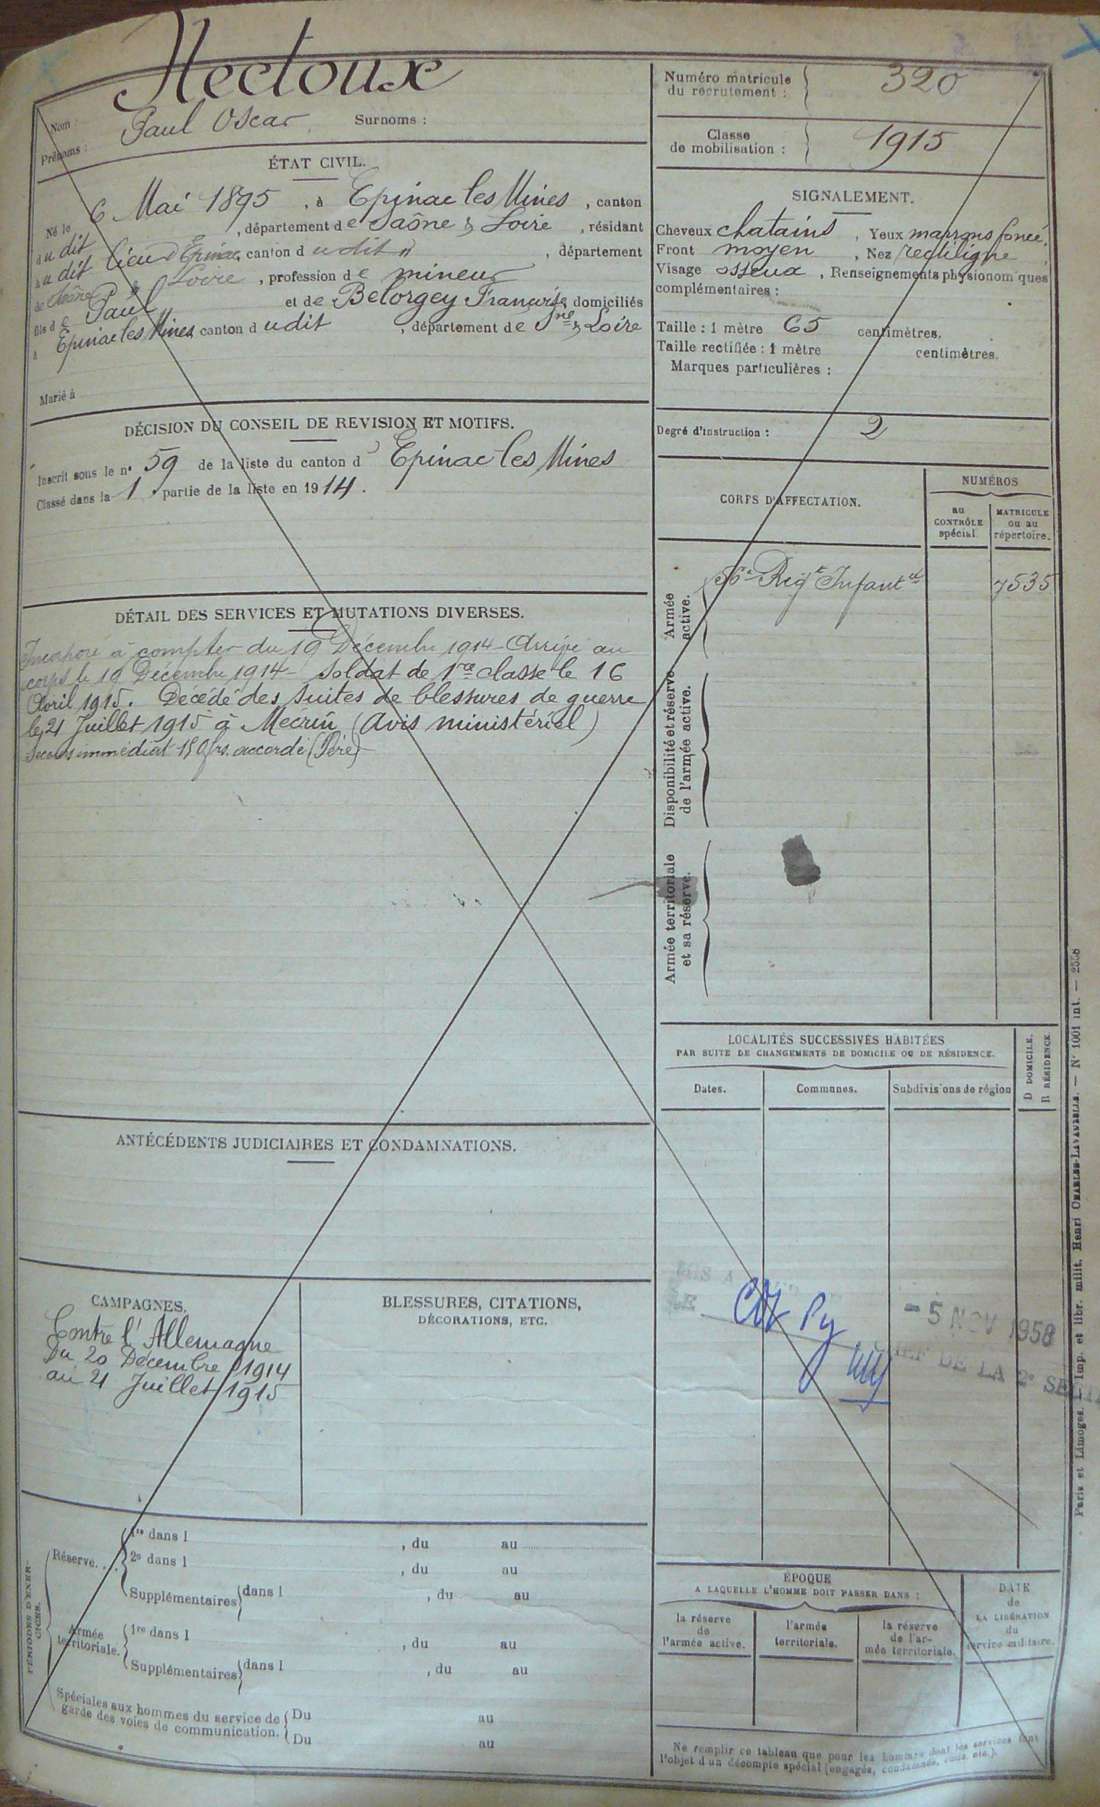 Nectoux
Nom :
Paul Oscar Surnoms :
Prénoms :
Numéro matricule du recrutement : 320
Classe de mobilisation : 1915
ÉTAT CIVIL.
Né le 6 Mai 1895, à Epinac les Mines, canton
dudit, département de Saône & Loire, résidant
audit lieu d'Epinac, canton dudit, département
de Saône & Loire, profession de mineur
fils de Paul et de Belorgey Françoise, domiciliés
à Epinac les Mines canton dudit, département de Sne & Loire
Marié à
SIGNALEMENT.
Cheveux chatains, Yeux marrons foncé,
Front moyen, Nez rectiligne,
Visage osseux, Renseignements physionomiques
complémentaires :
Taille : 1 mètre 65 centimètres.
Taille rectifiée : 1 mètre centimètres.
Marques particulières :
Degré d'instruction : 2
DÉCISION DU CONSEIL DE REVISION ET MOTIFS.
Inscrit sous le n° 59 de la liste du canton d Epinac les Mines
Classé dans la 1 partie de la liste en 1914.
CORPS D'AFFECTATION.
NUMÉROS
au CONTRÔLE spécial.
MATRICULE ou au répertoire.
Armée active.
56e Régt Infantie 7535
Disponibilité et réserve de l'armée active.
Armée territoriale et sa réserve.
DÉTAIL DES SERVICES ET MUTATIONS DIVERSES.
Incorporé à compter du 19 Décembre 1914 - Arrivé au
corps le 19 Décembre 1914 - Soldat de 1re classe le 16
Avril 1915. Décédé des suites de blessures de guerre
le 21 Juillet 1915 à Mécrin (Avis ministériel)
Secours immédiat 150 frs. accordé (Père)
LOCALITÉS SUCCESSIVES HABITÉES
PAR SUITE DE CHANGEMENTS DE DOMICILE OU DE RÉSIDENCE.
Dates.
Communes.
Subdivisions de région
D DOMICILE.
R RÉSIDENCE.
ANTÉCÉDENTS JUDICIAIRES ET CONDAMNATIONS.
CAMPAGNES.
Contre l'Allemagne
Du 20 Décembre 1914
au 21 Juillet 1915
BLESSURES, CITATIONS,
DÉCORATIONS, ETC.
- 5 NOV 1958
CHEF DE LA 2e SECTI
PÉRIODES D'EXERCICES.
Réserve...
1re dans l , du au
2e dans l , du au
Supplémentaires dans l , du au
Armée territoriale.
1re dans l , du au
Supplémentaires dans l , du au
Spéciales aux hommes du service de garde des voies de communication.
Du au
Du au
ÉPOQUE
A LAQUELLE L'HOMME DOIT PASSER DANS :
la réserve de l'armée active.
l'armée territoriale.
la réserve de l'armée territoriale.
DATE de LA LIBÉRATION du service militaire.
Ne remplir ce tableau que pour les hommes dont les services font
l'objet d'un décompte spécial (engagés, condamnés, omis, etc.).
Paris et Limoges. — Imp. et libr. milit. Henri CHARLES-LAVAUZELLE. — N° 1001 int. — 2538